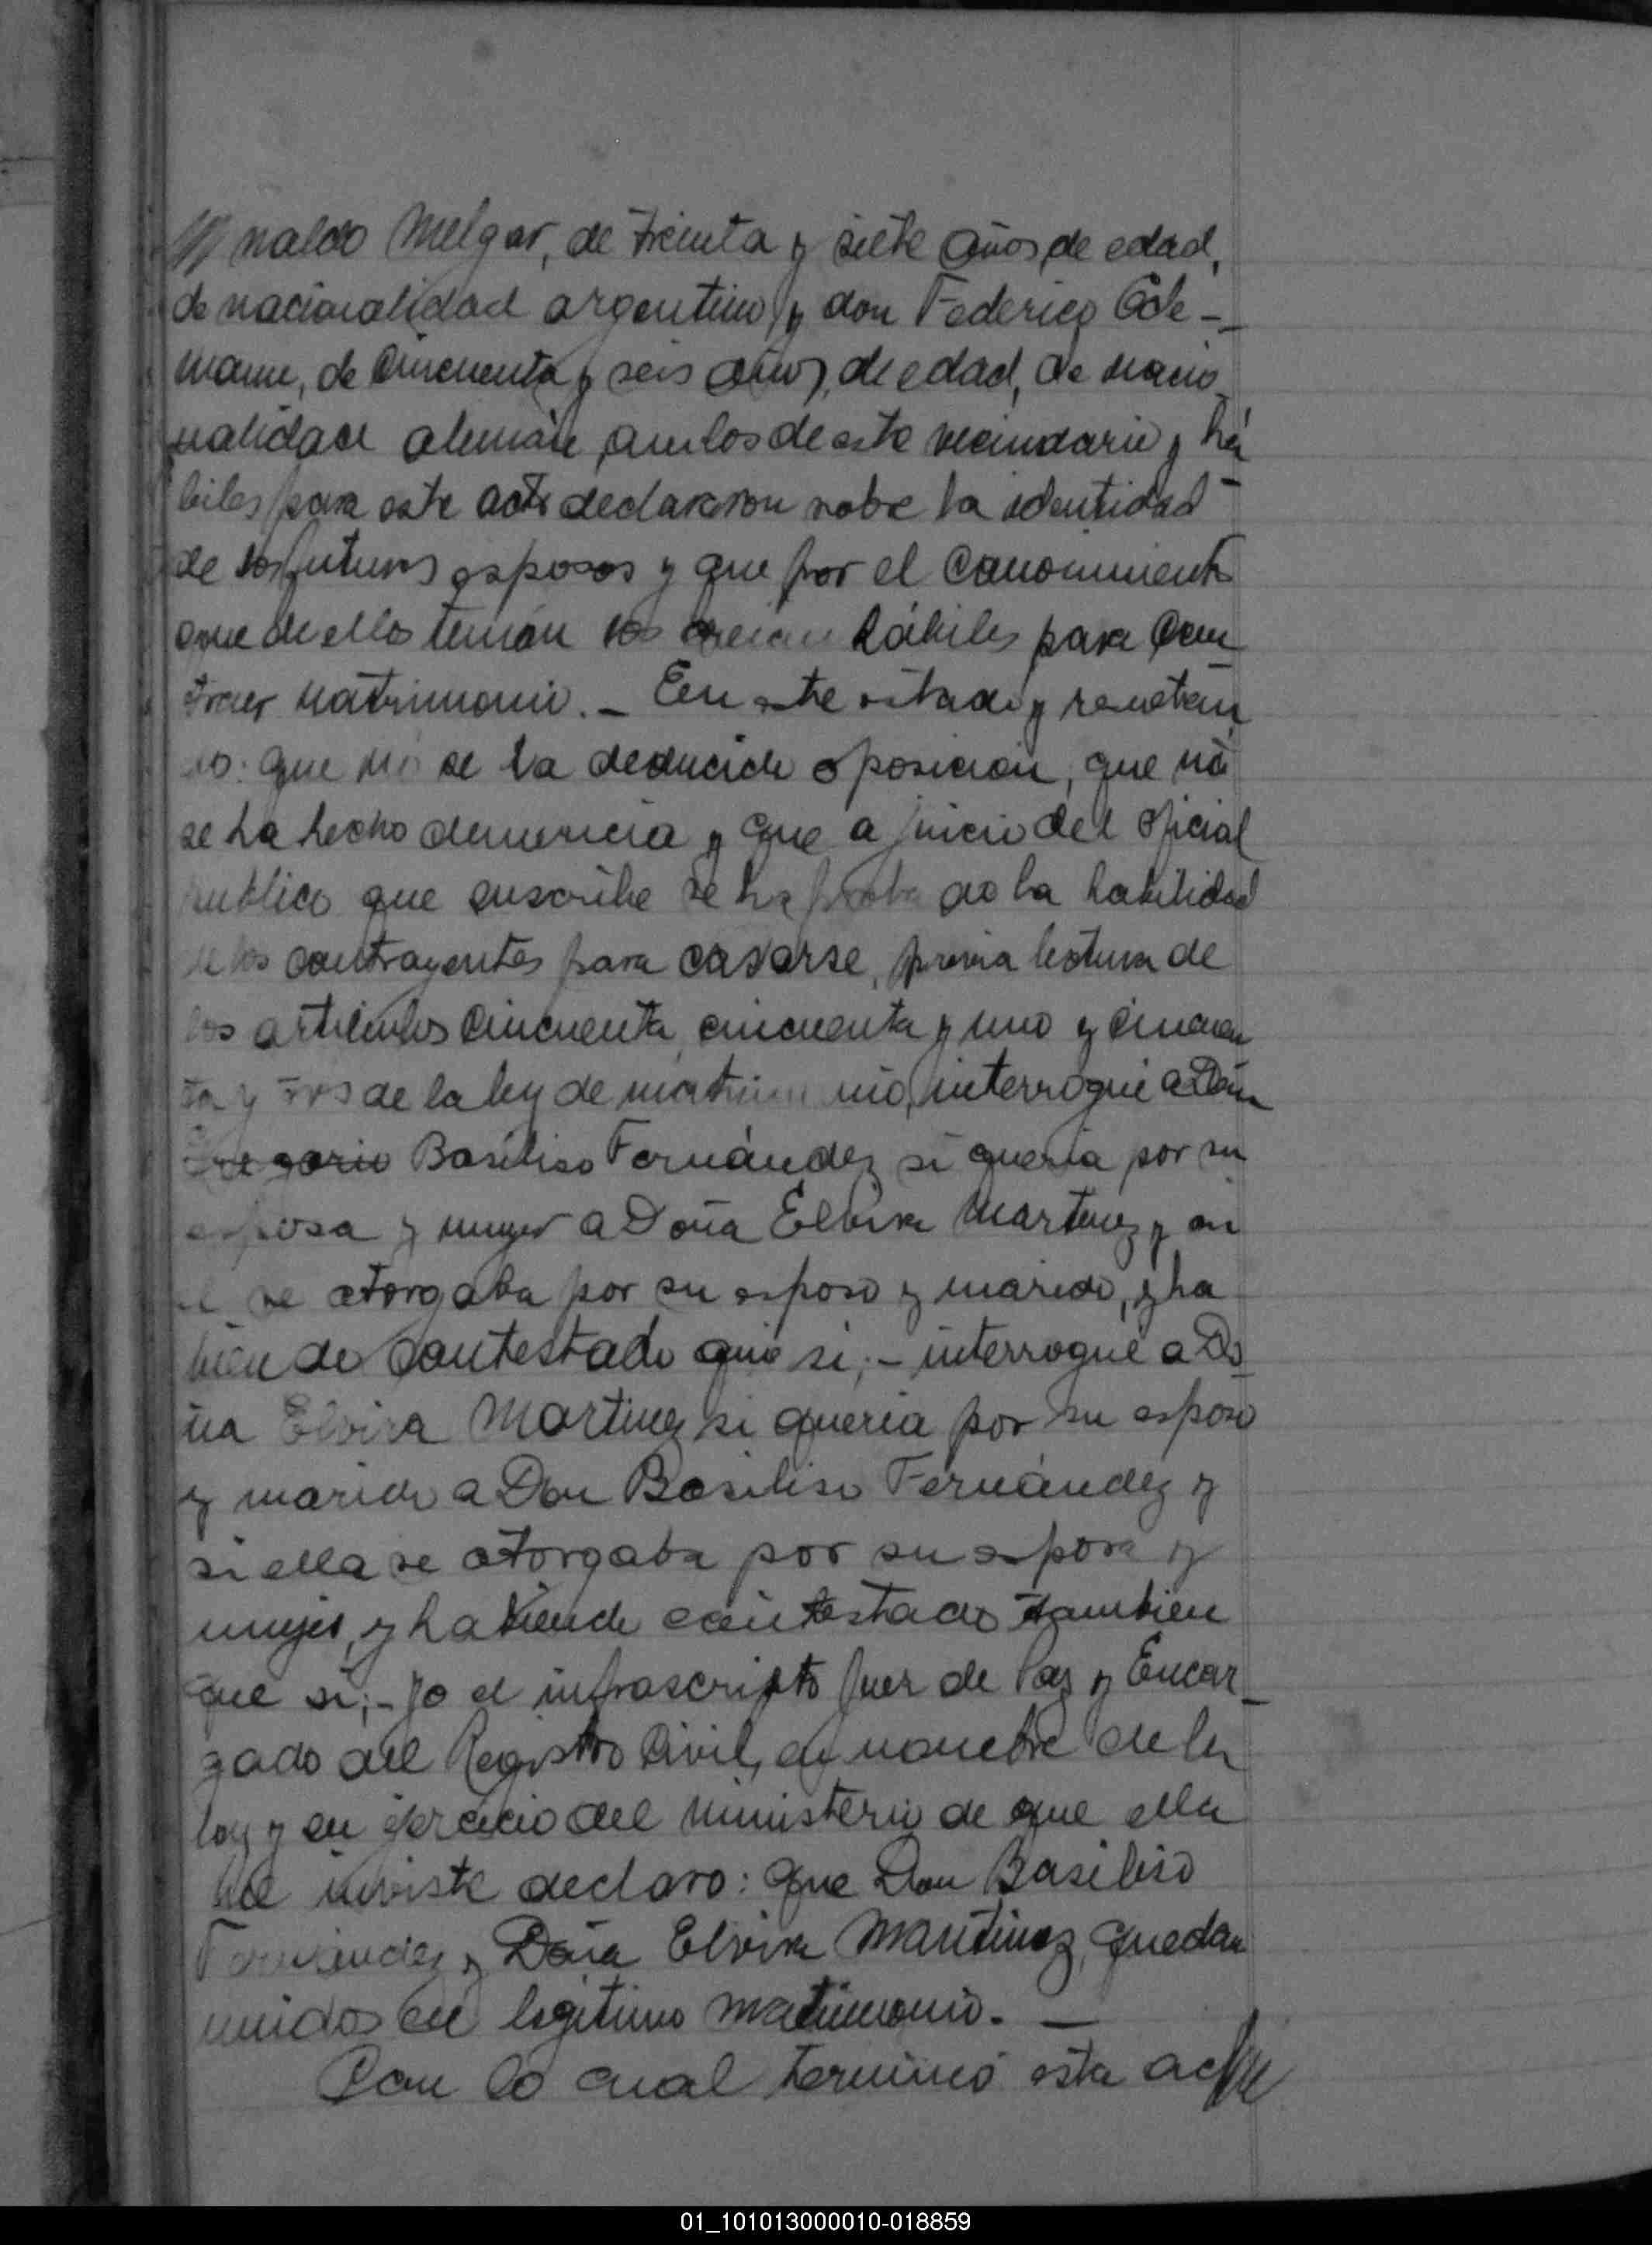 naldo Melgar, de treinta y siete años de edad,
de nacionalidad argentino y don Federico Ede-
mann, de cincuenta y seis años, de edad, de nacio
nalidad alemán, ambos de este vecindario y há
biles para este acto declararon sobre la identidad
de los futuros esposos y que por el conocimiento
que de ellos tenían los creían hábiles para con
traer matrimonio. - En este estado y
que no se ha deducido oposición, que no
se ha hecho denuncia y que a juicio del oficial
publico que suscribe se ha probado la habilidad
de los contrayentes para casarse, previa lectura de
los artículos cincuenta, cincuenta y uno y cincuen
ta y tres de la ley de matrimonio, interrogué a Don
Gregorio Basiliso Fernández si quería por su
esposa y mujer a Doña Elvira Martinez y si
el se otorgaba por su esposo y marido, y ha
biendo contestado que si; - interrogué a Do
ña Elvira Martinez si quería por su esposo
y marido a Don Basiliso Fernández y
si ella se otorgaba por su esposa y
mujer, y habiendo contestado tambien
que si; - yo el infrascripto Juez de Paz y Encar-
gado del Registro Civil, en nombre de la
ley y en ejercicio del ministerio de que ella
me inviste declaro: que Don Basiliso
Fernández y Doña Elvira Martinez, quedan
unidos en legítimo matrimonio. -
Con lo cual terminó esta acta
01_101013000010-018859